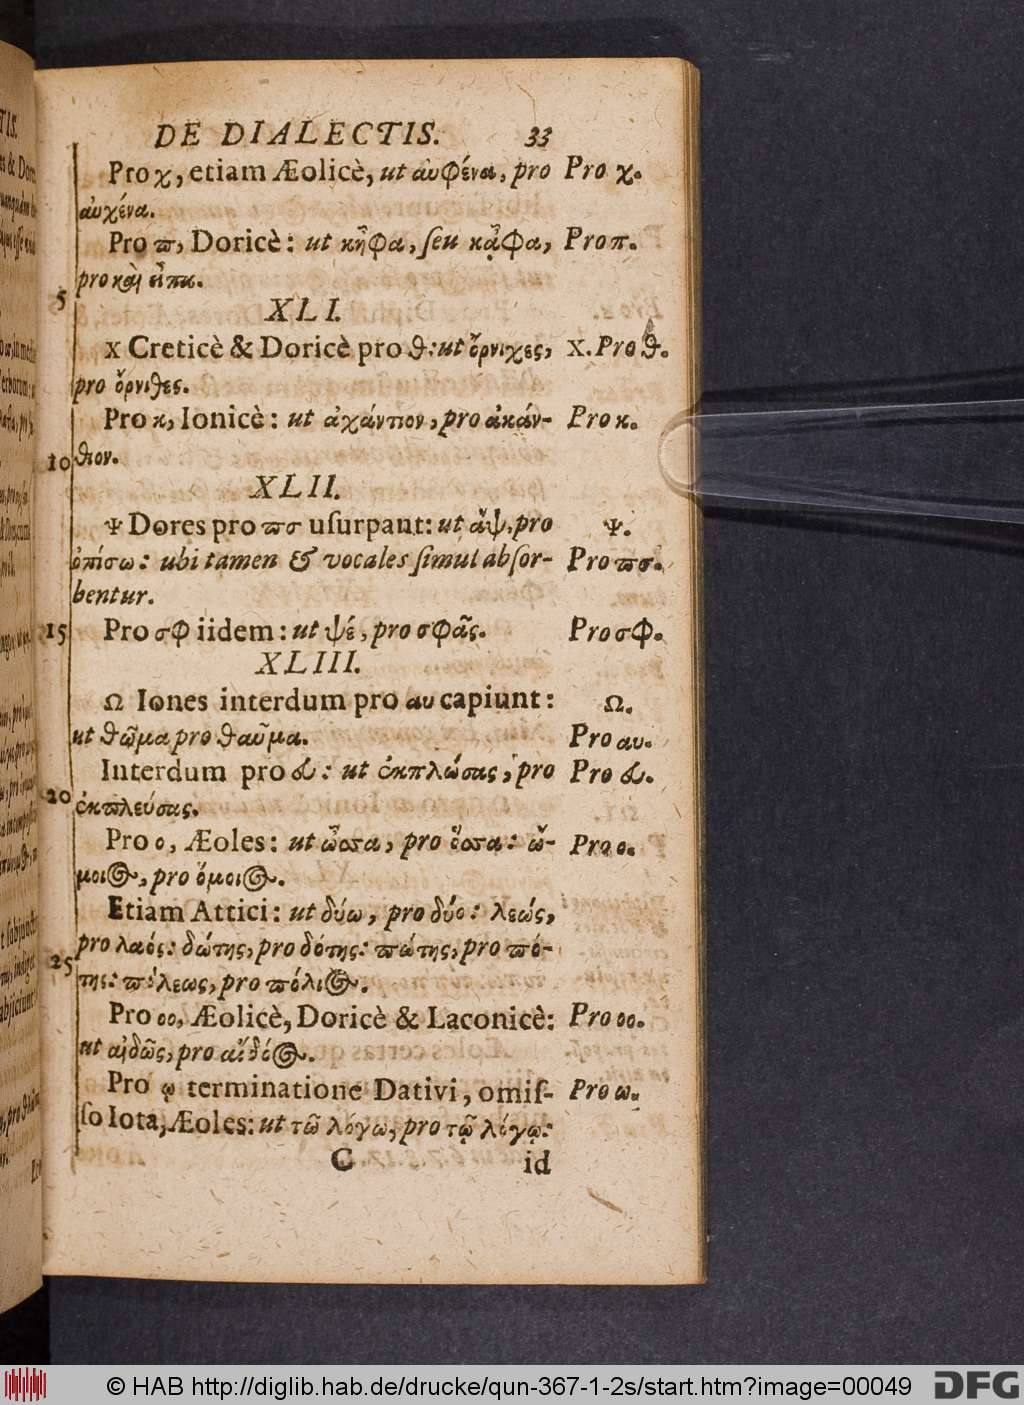 DE DIALECTIS. 33
Pro χ, etiam Æolicè, ut αυφένα, pro Pro χ.
αυχένα.
Pro ϖ, Doricè: ut κἦφα, ſeu κᾆφα, Pro π.
pro καὶ εἶπα.
5
XLI.
X Creticè & Doricè pro ϑ: ut ὄρνιχες, X. Pro ϑ.
pro ὄρνιθες.
Pro κ, Ionicè: ut ἀχάντιον, pro ἀκάν- Pro κ.
10 θιον.
XLII.
Ψ Dores pro ϖσ uſurpant: ut ἄψ, pro Ψ.
ὀπίσω: ubi tamen & vocales ſimul abſor- Pro ϖσ.
bentur.
15 Pro σφ iidem: ut ψέ, pro σφᾶς. Pro σφ.
XLIII.
Ω Iones interdum pro αυ capiunt: Ω.
ut ϑῶμα pro ϑαῦμα. Pro αυ.
Interdum pro ευ: ut ἐκπλώσας, pro Pro ευ.
20 ἐκϖλεύσας.
Pro ο, Æoles: ut ὦσσα, pro ὅσσα: ὤ- Pro ο.
μοιος, pro ὅμοιος.
Etiam Attici: ut δύω, pro δύο: λεώς,
pro λαός: δώτης, pro δότης: ϖώτης, pro ϖό-
25 της: ϖόλεως, pro ϖόλιος.
Pro οο, Æolicè, Doricè & Laconicè: Pro οο.
ut αἰδῶς, pro αἰδόος.
Pro ῳ terminatione Dativi, omiſ- Pro ω.
ſo Iota, Æoles: ut τῶ λόγω, pro τῷ λόγῳ:
C id
© HAB http://diglib.hab.de/drucke/qun-367-1-2s/start.htm?image=00049 DFG